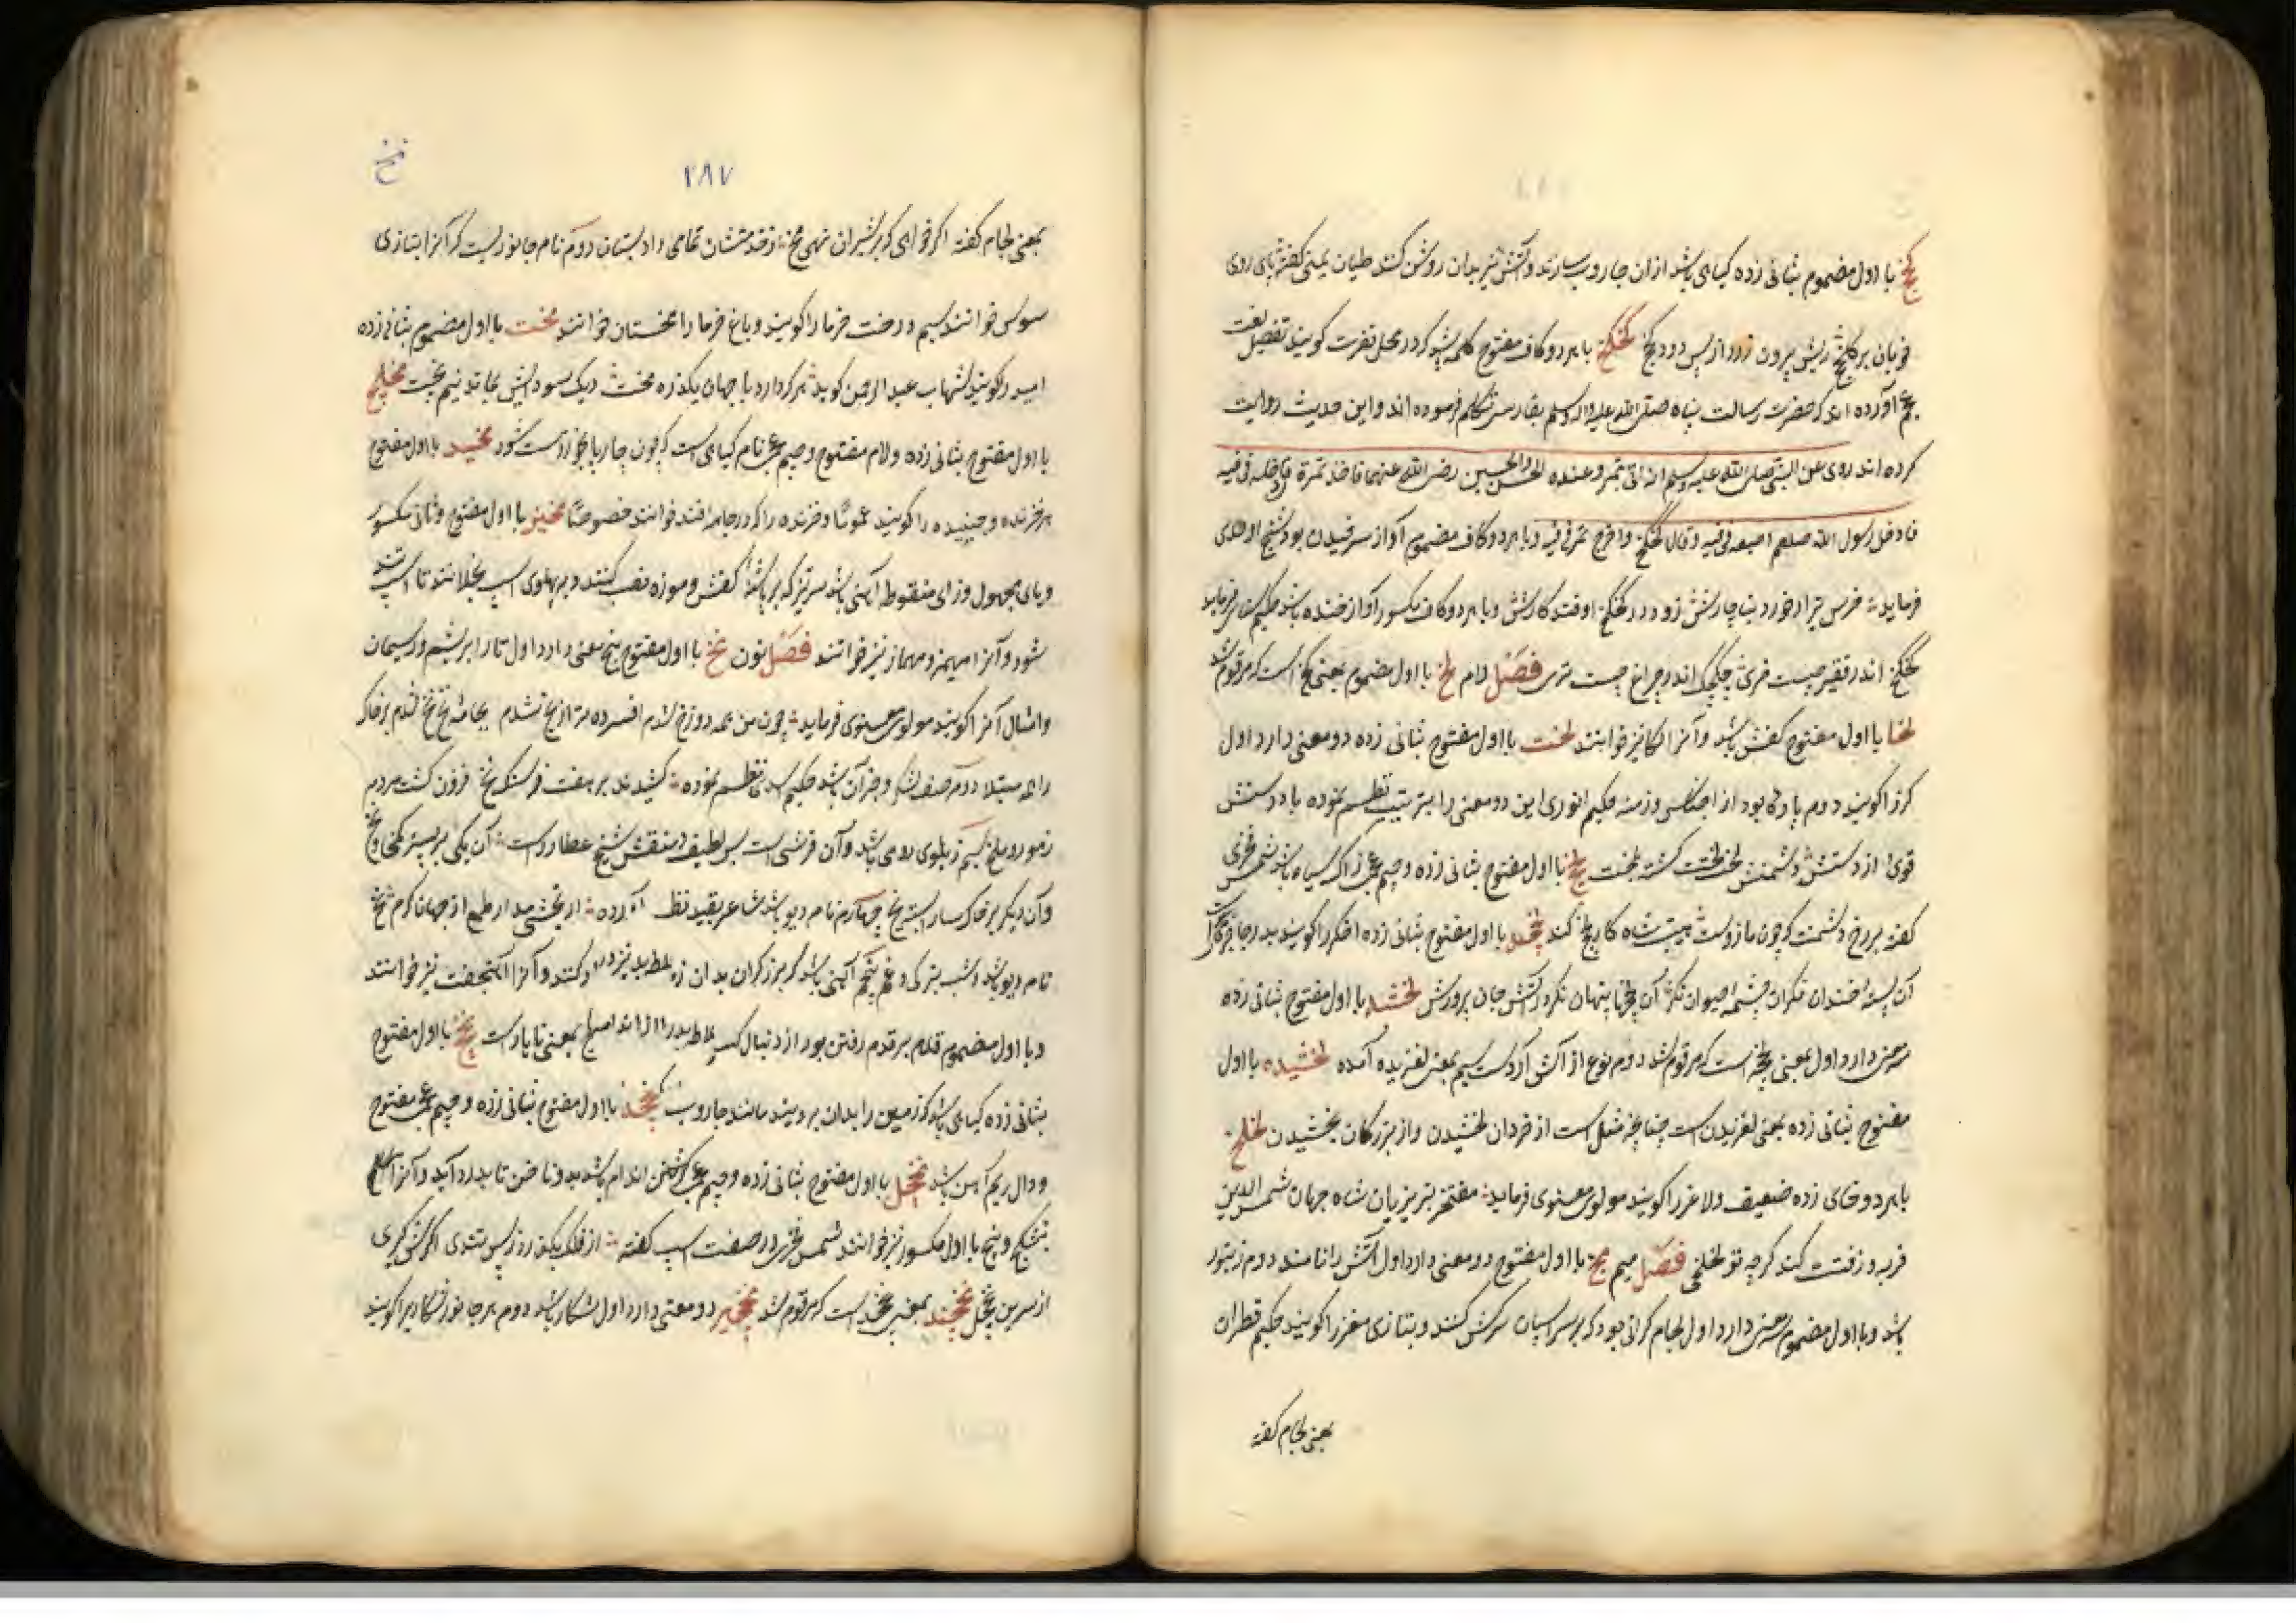 کخ با اول مضموم بثانی زده کیاهی باشد از ان جاروب سازند و آتش نیز بدان روشن کنند طیان بمی کفته بای روی
خوبان بر کخ ریش برون زود از پس دود کخ کخکخ با هر دو کاف مفتوح کلمه باشد که در محل نفرت کویند تفصیل لغت
عجم آورده اند که حضرت رسالت پناه صلی الله علیه واله وسلم بفارسی تکلم فرموده اند و این حدیث روایت
کرده اند روی عن النبی صلی الله علیه وسلم انه اتی بتمر و عنده الحسن والحسین رضی الله عنهما فاخذ تمرة فادخله فی فیه
فادخل رسول الله صلعم اصبعه فی فیه و قال کخکخ و اخرج تمر فی فیه و با هر دو کاف مضموم آواز سرفیدن بود شیخ اوحدی
فرماید خرس ترا در خورد بناچارنش زود در کخکخ اوفتد کارش و با هر دو کاف مکسور آواز خنده باشد حکیم فرماید
کخکخ اندر فقیر چیست خری چکچک اندر چراغ چیست تری فصل لام لخ با اول مضموم بمعنی کخ است که مرقوم شد
لخا با اول مفتوح کفش باشد و آنرا لکا نیز خوانند لخت با اول مفتوح بثانی زده دو معنی دارد اول
کرز را کویند دوم پاره بود از اجناس وزمنه حکیم انوری این دو معنی را بترتیب نظم نموده با در دستش
قوی از دستش دشمنش لخت لخت کشته لخت لخج با اول مفتوح بثانی زده و جیم عجمی زاک سیاه باشد شمس فخری
کفته بر رخ دشمنت که چون مازوست هیبت شاه کار لخج کند لخچه با اول مفتوح بثانی زده اخکر را کویند بدر جاجرمی
آن پسته خندان نکر آن چشمه حیوان نکر آن لخچه پنهان نکر در آتش جان پرورش لخشه با اول مفتوح بثانی زده
سه معنی دارد اول بمعنی لخچه است که مرقوم شد دوم نوع از آش آردست سیم بمعنی لغزیده آمده لخشیده با اول
مفتوح بثانی زده بمعنی لغزیدن است چنانچه مثل است از خردان لخشیدن و از بزرکان بخشیدن لخلخ
با هر دو خای زده ضعیف و لاغر را کویند مولوی معنوی فرماید مفتخر تبریزیان شاه جهان شمس الدین
فربه و زفتت کند کرچه تو لخلخی فصل میم مخ با اول مفتوح دو معنی دارد اول آتش را نامند دوم زنبور
باشد و با اول مضموم سه معنی دارد اول لجام کرانی بود که بر سر اسپان سرکش کنند و بتازی مغز را کویند حکیم قطران
بمعنی لجام کفته
نخ
۲۸۷
بمعنی لجام کفته اکر خواهی که بر شیران نهی مخ ز قندشان تمامی داد بستان دوم نام جانوریست که آنرا بتازی
سوس خوانند سیم درخت خرما را کویند و باغ خرما را مخستان خوانند مخت با اول مضموم بثانی زده
امید را کویند شهاب عبد الرحمن کوید هر که دارد با جهان یکذره مخت دیک سودایش بماند نیم پخت مخلج
با اول مفتوح بثانی زده و لام مفتوح و جیم عجمی نام کیاهی است که چون چارپا بخورد مست شود مخید با اول مفتوح
هر خزنده و جنبیده را کویند عموما و خزنده را که در جامه افتد خوانند خصوصا مخیز با اول مفتوح و ثانی مکسور
و یای مجهول و زای منقوطه آهنی باشد سر تیز که بر پاشنه کفش و موزه نصب کنند و بر پهلوی اسپ بخلانند تا اسپ تند
شود و آنرا مهیمز و مهماز نیز خوانند فصل نون نخ با اول مفتوح پنج معنی دارد اول تار ابریشم و ریسمان
و امثال آنرا کویند مولوی معنوی فرماید چون من همه دوزخ شدم افسرده تر از یخ نشدم بکافه نخ نخ شدم بر خاک
راهم مبتلا دوم صف لشکر و جز آن باشد حکیم اسدی نظم نموده کشیدند بر هفت فرسنک نخ فزون کشت مردم
ز مور و ملخ سیم زیلوی رومی باشد و آن فرشی است بس لطیف و منقش شیخ عطار راست آن یکی بر بستر کمخا و نخ
و آن دیکر بر خاکسار بسته یخ چهارم نام دیو باشد شاعر بقید نظم آورده از بخشی مدار طمع از جهان کرم نخ
نام دیو باشد و شب بترکی و غم پنجم آهنی باشد که برزکران بدان زمین و کنند و آنرا آهنجفت نیز خوانند
و با اول مضموم قدم بر قدم رفتن بود از دنبال کسی بمعنی ناپاراست نخج با اول مفتوح
بثانی زده کیاهی باشد که زمین را بدان بروبند مانند جاروب نخجد با اول مفتوح بثانی زده و جیم عجمی مفتوح
و دال ریم آهن باشد نخجل با اول مفتوح بثانی زده و جیم عجمی کرفتن اندام باشد بدو ناخن تا بدرد آید و آنرا
نشکنج و نیخ با اول مکسور نیز خوانند شمس فخری در صفت اسپ کفته از فلک بکذرد ز بس تندی اکرش کیری
از سرین نخجل نخجند بمعنی نخجد است که مرقوم شد نخجیر دو معنی دارد اول شکار باشد دوم هر جانور شکاری را کویند